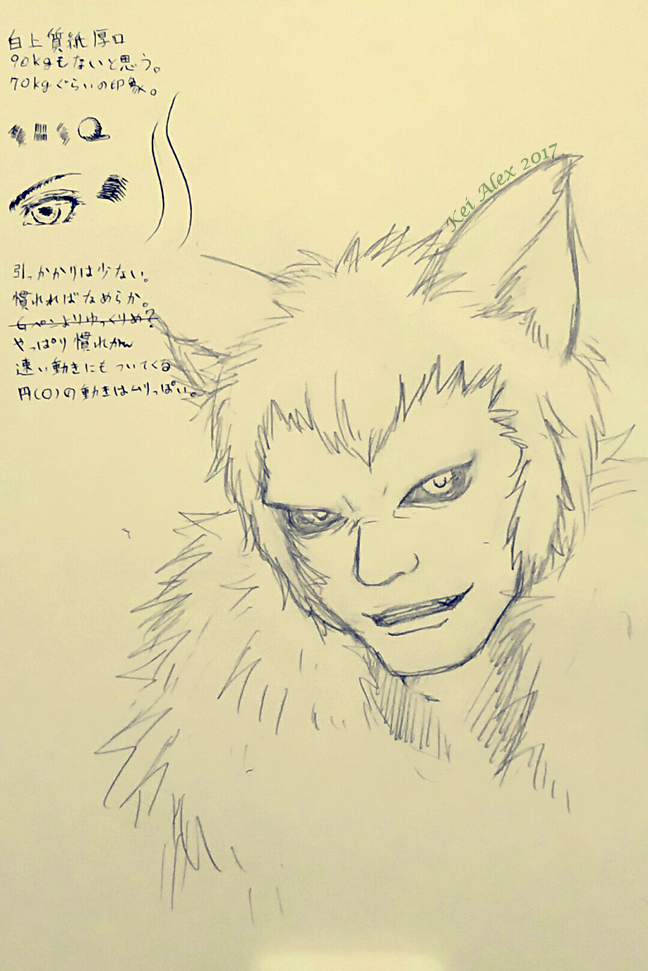 白上質紙厚口
90kgもないと思う。
70kgぐらいの印象。
Kei Alex 2017
引っかかりは少ない。
慣れればなめらか。
Gペンよりゆっくりめ?
やっぱり慣れかぃ
速い動きにもついてくる
円(○)の動きはムリっぽい。